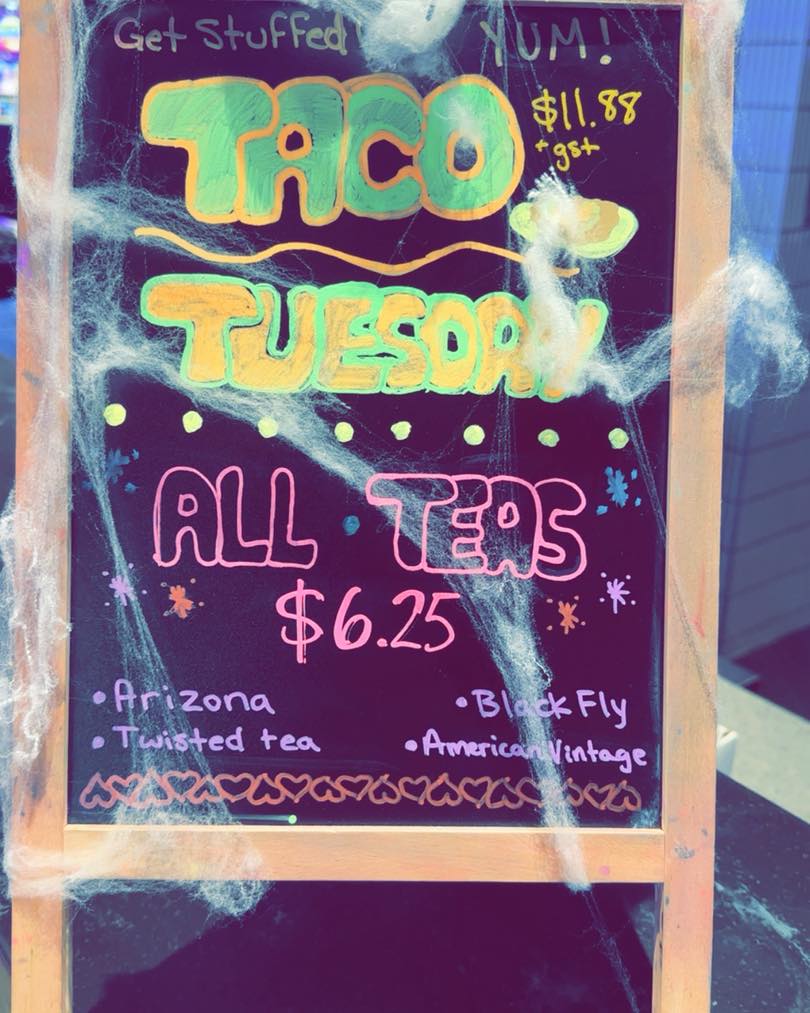 Get Stuffed! YUM!
TACO
$11.88
+ gst
TUESDAY
ALL TEAS
$6.25
• Arizona
• Black Fly
• Twisted tea
• American Vintage